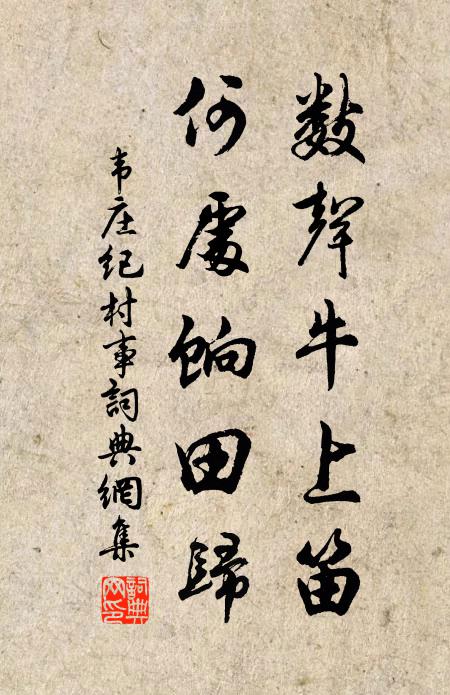 數聲牛上笛
何處餉田歸
韦庄纪村事詞典網集
詞典
网印